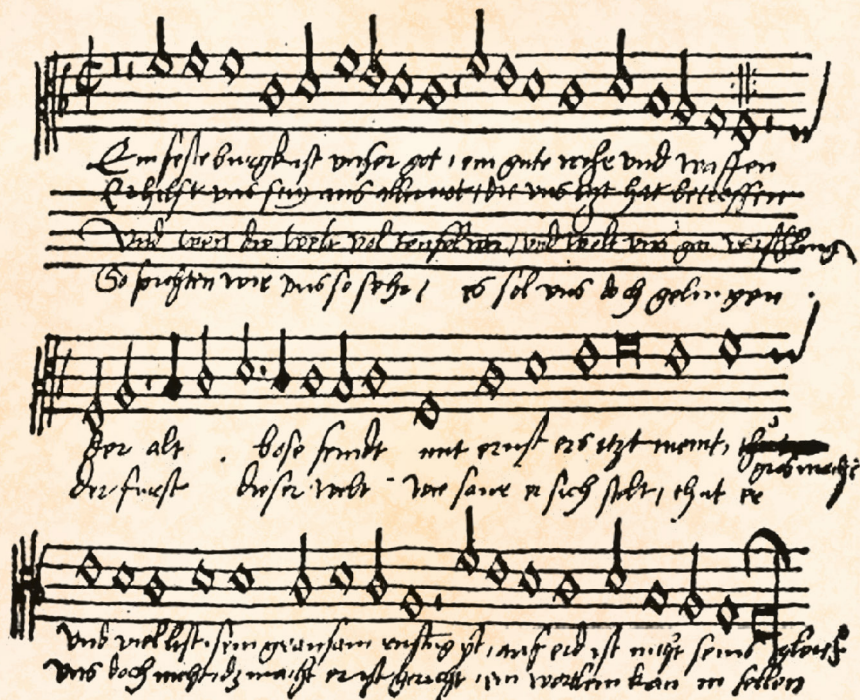 Ein feste burgk ist unser got, ein gute wehr und waffen
Er hilfft uns frey aus aller not, die uns itzt hat betroffen
Und wen die welt vol teuffel wer, und wolt uns gar
So furchten wir uns so sehr, es sol uns doch gelingen
Der alt bose feindt mit ernst ers itzt meint,
gros macht
der furst dieser welt wie saur er sich stelt, thut er
Und viel list sein grausam rustung yst, auf erd ist nicht seins gleich
uns doch nicht, dz macht er yst gericht, ein wortlein kan in fellen